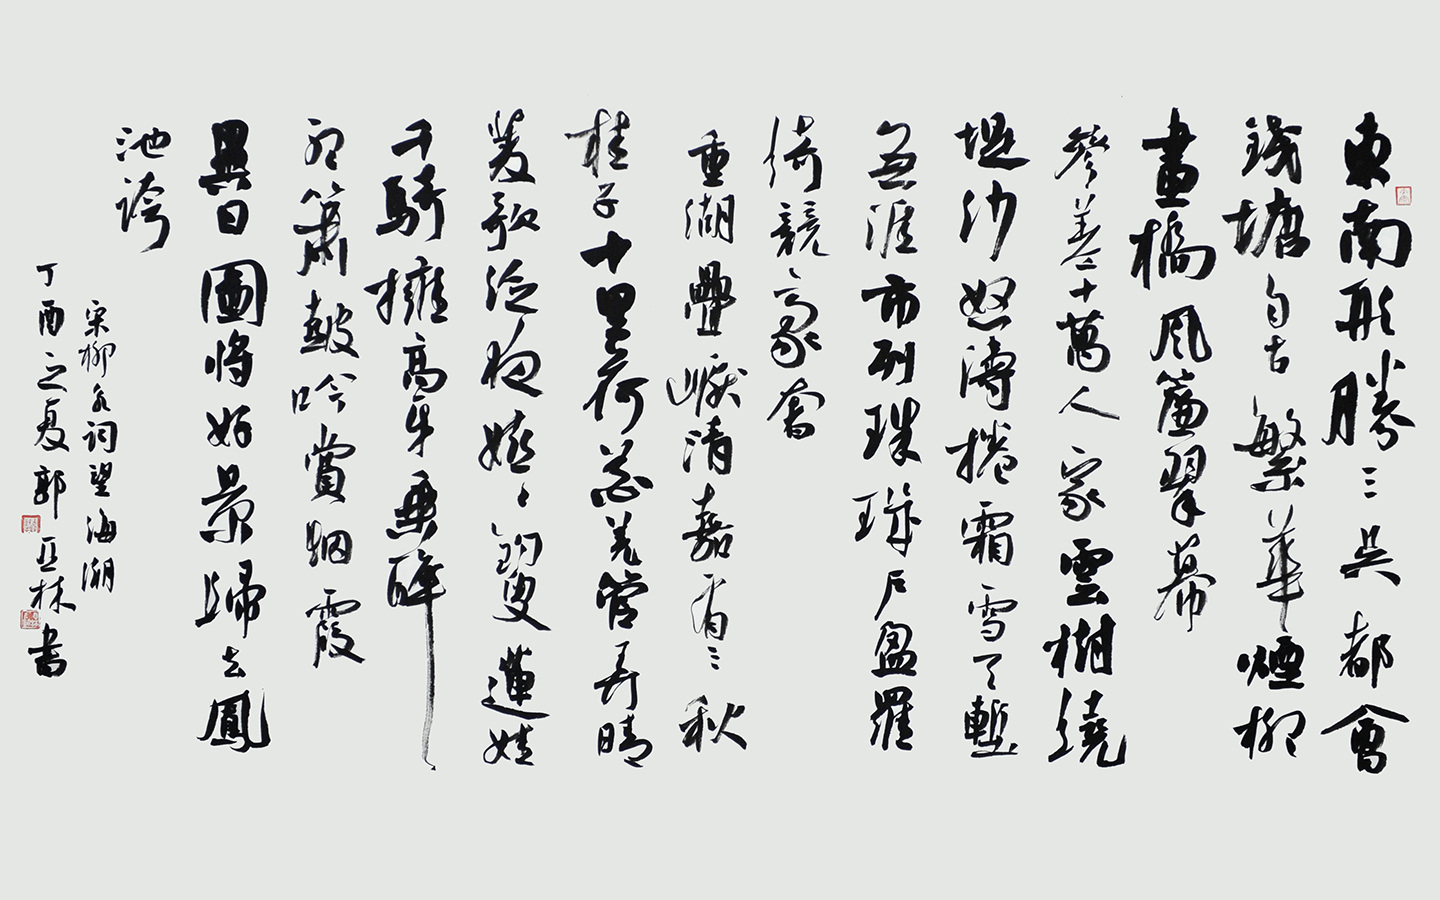 東南形勝三吳都會
錢塘自古繁華煙柳
畫橋風簾翠幕
參差十萬人家雲樹繞
堤沙怒濤捲霜雪天塹
無涯市列珠璣戶盈羅
綺競豪奢
重湖疊巘清嘉有三秋
桂子十里荷花羌管弄晴
菱歌泛夜嬉〻釣叟蓮娃
千騎擁高牙乘醉
聽簫鼓吟賞烟霞
異日圖將好景歸去鳳
池誇
宋柳永詞望海潮
丁酉之夏郭亞林書